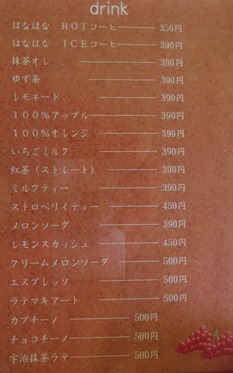 drink
はなはな HOTコーヒー 350円
はなはな ICEコーヒー 390円
抹茶オレ 390円
ゆず茶 390円
レモネード 390円
100%アップル 390円
100%オレンジ 390円
いちごミルク 390円
紅茶（ストレート） 390円
ミルクティー 390円
ストロベリィティー 450円
メロンソーダ 390円
レモンスカッシュ 450円
クリームメロンソーダ 500円
エスプレッソ 500円
ラテマキアート 500円
カプチーノ 500円
チョコチーノ 500円
宇治抹茶ラテ 500円